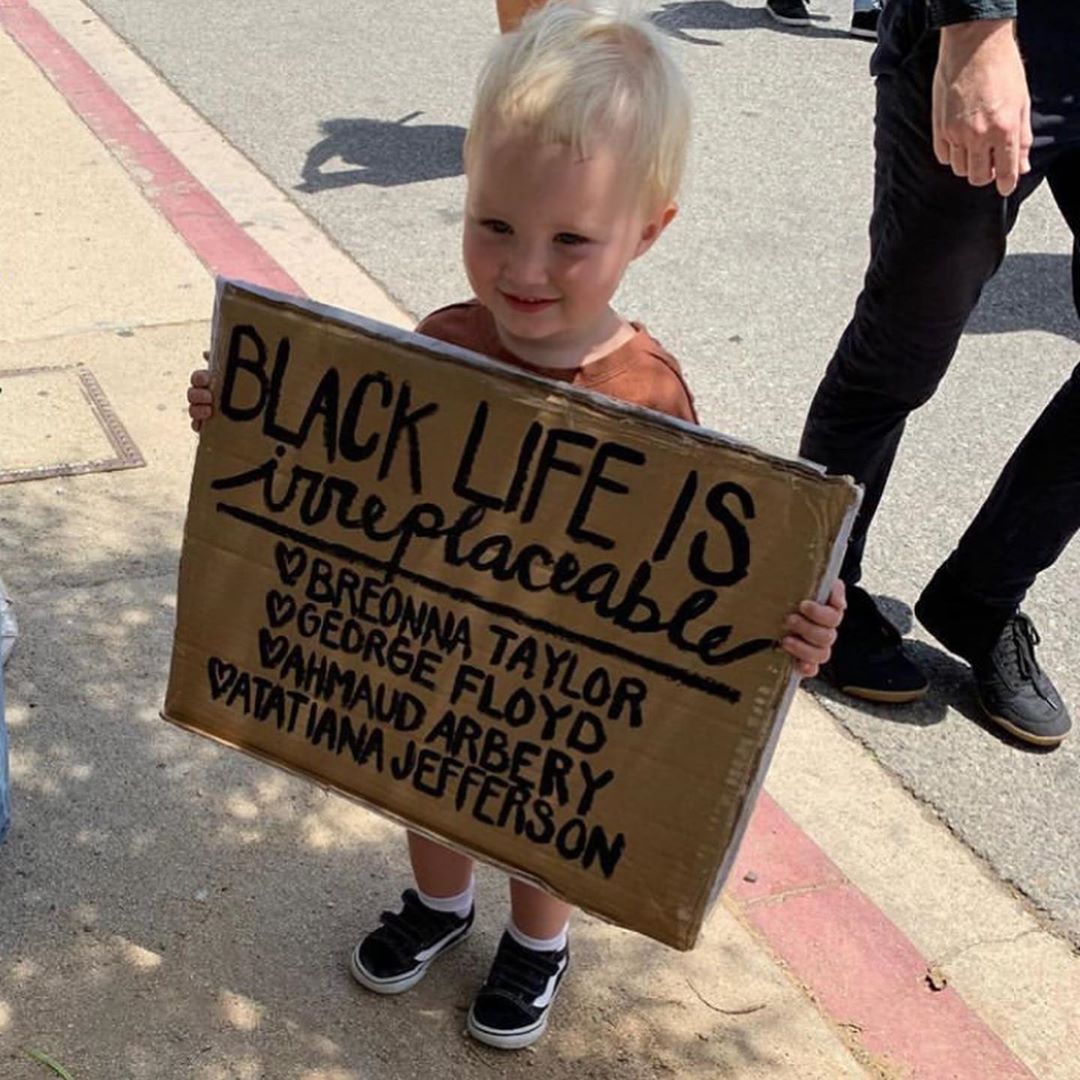 BLACK LIFE IS
irreplaceable
♡BREONNA TAYLOR
♡GEORGE FLOYD
♡AHMAUD ARBERY
♡ATATIANA JEFFERSON